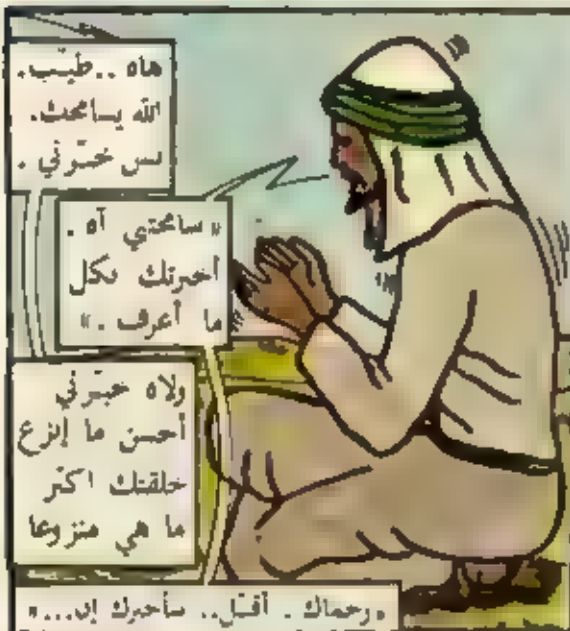 هاه ..طيّب.
الله يسامحك.
بس خبّرني .
« سامحني آه .
أخبرتك بكل
ما أعرف .»
ولاه خبّرني
أحسن ما إنزع
خلقتك اكتر
ما هي منزوعا
«رحماك . أقبّل.. سأخبرك إن...»